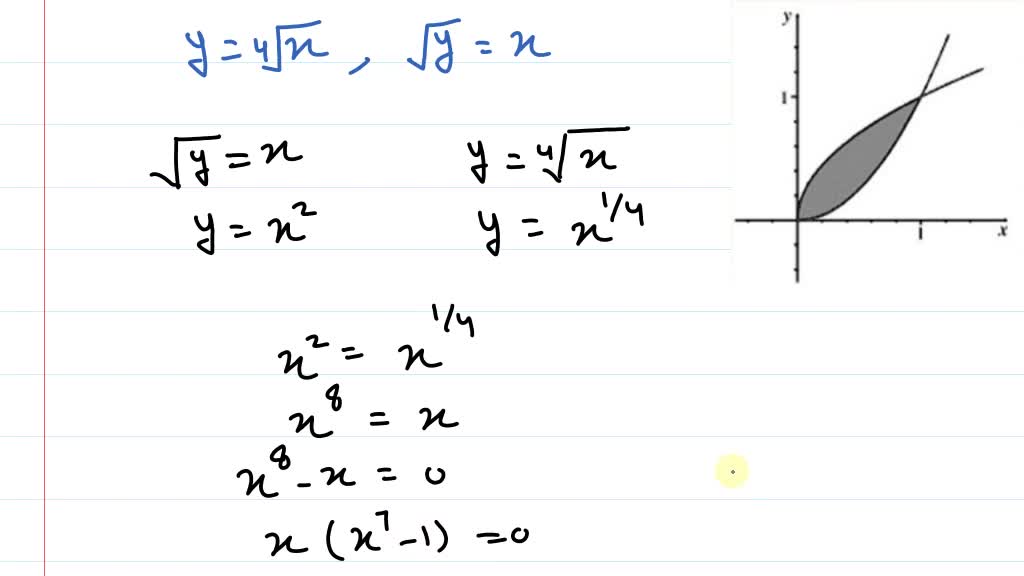 y = ∜x , √y = x
√y = x
y = x²
y = ∜x
y = x^1/4
x² = x^1/4
x⁸ = x
x⁸ - x = 0
x (x⁷ - 1) = 0
y
1
1
x